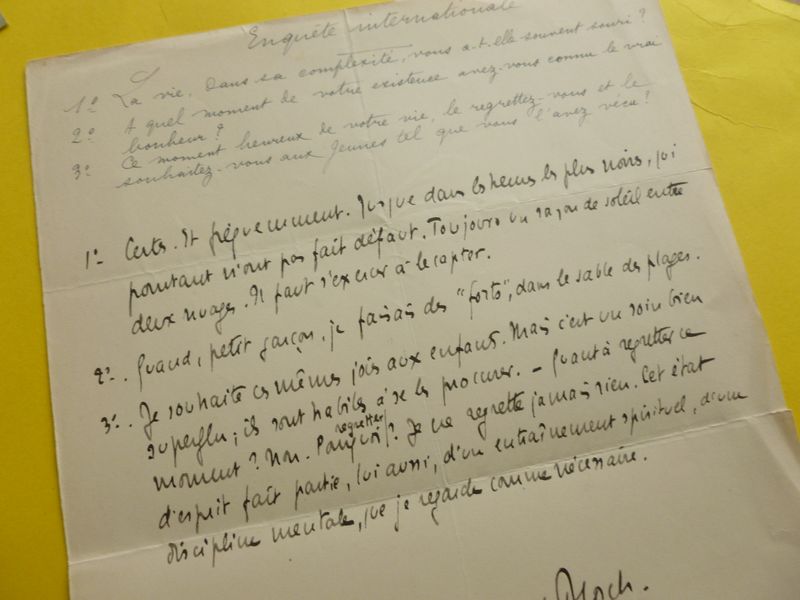 Enquête internationale
1º La vie, dans sa complexité, vous a-t-elle souvent souri?
2º A quel moment de votre existence avez-vous connu le vrai
bonheur?
3º Ce moment heureux de votre vie, le regrettez-vous et le
souhaitez-vous aux Jeunes tel que vous l'avez vécu?
1º Certes. Et fréquemment. Jusque dans les heures les plus noires, qui
pourtant n'ont pas fait défaut. Toujours un rayon de soleil entre
deux nuages. Il faut s'exercer à le capter.
2º. Quand, petit garçon, je faisais des "forts", dans le sable des plages.
3º. Je souhaite ces mêmes joies aux enfants. Mais c'est un soin bien
superflu; ils sont habiles à se les procurer. - Quant à regretter ce
regretter
moment? Non. Pourquoi? Je ne regrette jamais rien. Cet état
d'esprit fait partie, lui aussi, d'un entraînement spirituel, d'une
discipline mentale, que je regarde comme nécessaire.
Bloch.